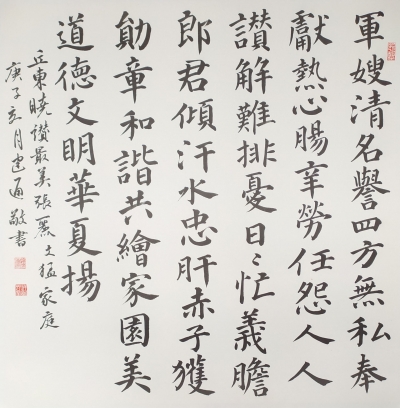 軍嫂清名譽四方無私奉
獻熱心腸辛勞任怨人人
讃解難排憂日日忙義膽
郎君傾汗水忠肝赤子獲
勛章和諧共繪家園美
道德文明華夏揚
丘東曉讃最美張麗士猛家庭
庚子亥月建通敬書